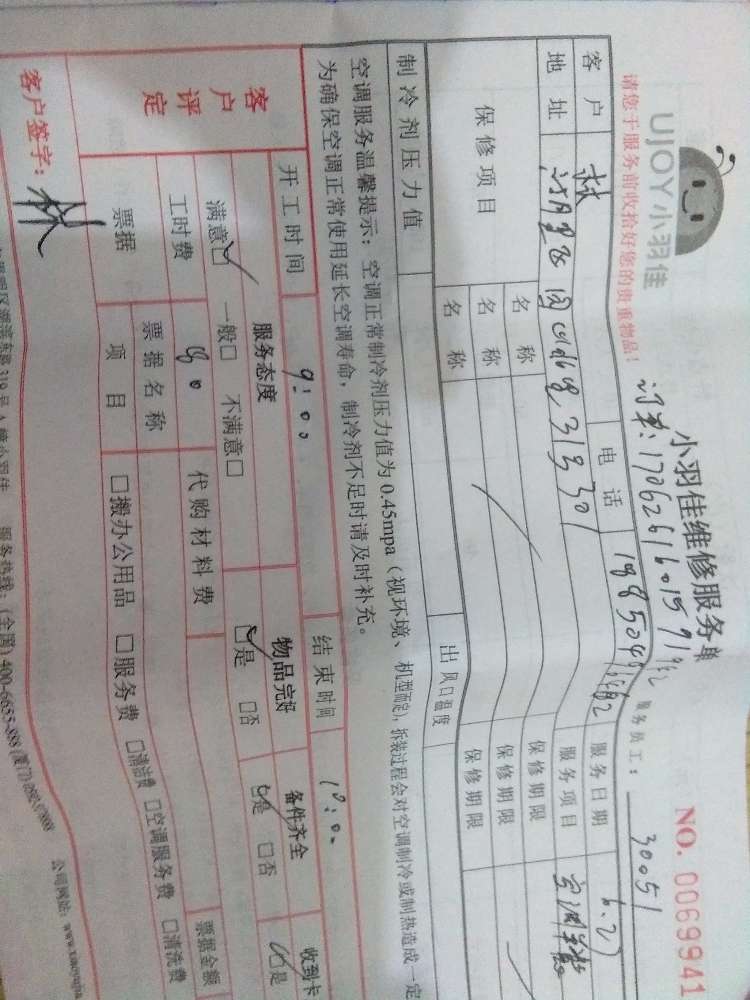 UJOY小羽佳
小羽佳维修服务单
NO. 0069941
请您于服务前收拾好您的贵重物品!
服务员工: 30051
客户 林 电话 服务日期 6.27
地址 服务项目 空调
保修项目 名称 保修期限
名称 保修期限
名称 保修期限
制冷剂压力值 出风口温度
空调服务温馨提示:空调正常制冷剂压力值为0.45mpa(视环境、机型而定),拆装过程会对空调制冷或制热造成一定
为确保空调正常使用延长空调寿命,制冷剂不足时请及时补充。
客户评定
开工时间 9:00 结束时间 10:00
服务态度 物品完好 备件齐全 收到卡
满意□ 一般□ 不满意□ □是 □否 □是 □否 □是
工时费 80 代购材料费
票据 票据名称 票据金额
项目 □搬办公用品 □服务费 □清洁费 □空调服务费 □清洗费
客户签字: 林
服务热线:(全国)400-6655-888
公司网址: